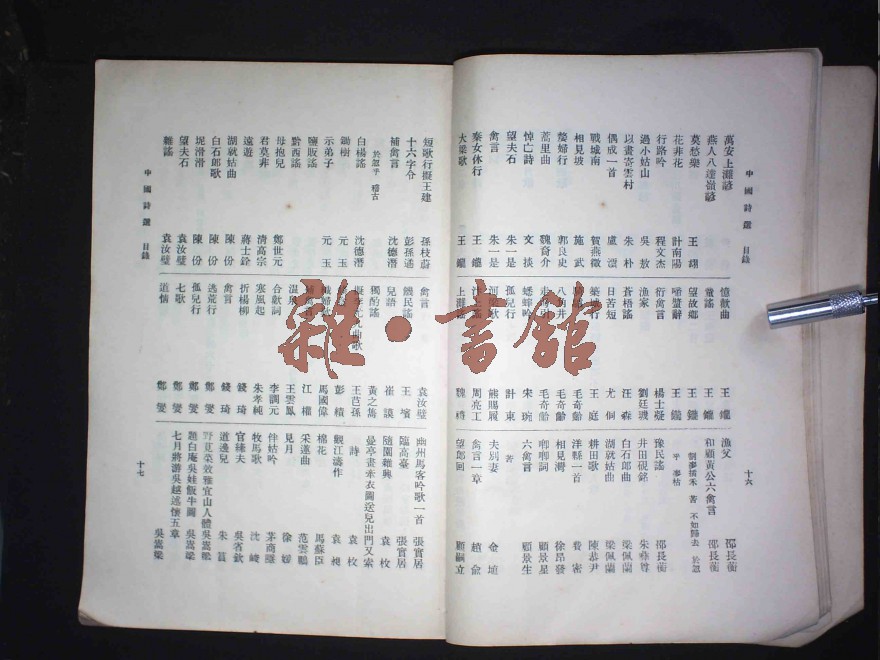 中國詩選 目錄
十六
萬安上灘諺
燕人八達嶺諺
莫愁樂 王翃
花非花 計南陽
行路吟 程文杰
過小姑山 吳放
以畫寄雲村 朱朴
偶成一首 盧澐
戰城南 賀燕徵
相見坡 施武
嫠婦行 郭良史
蒿里曲 魏裔介
悼亡詩 文掞
望夫石 朱一是
禽言 朱一是
秦女休行 王鑨
大梁歌 王鑨
憶猷曲 王鑨
童謠 王鑨
望故鄉 王鑨
嘲鹽辭 王鑨
衍禽言 楊士凝
漁家 劉廷璣
蒼梧謠 汪森
日苦短 尤侗
築城行 王庭
毛奇齡
八角井 毛奇齡
走方引 毛奇齡
蟋蟀吟 宋琬
孤兒行 計東
熊賜履
周亮工
上灘謠 魏畊
漁父 邵長蘅
和顧黃公六禽言 邵長蘅
割麥插禾 著 不如歸去 於忽
乎 麥枯
豫民謠 邵長蘅
井田硯銘 朱彝尊
白石郎曲 梁佩蘭
湖就姑曲 梁佩蘭
耕田歌 陳恭尹
洋縣一首 費密
相見灣 徐昂發
唧唧詞 顧景星
六禽言 顧景生
著
夫別妻 金埴
禽言一章 趙俞
望郎回 顧嗣立
中國詩選 目錄
十七
短歌行擬王建 孫枝蔚
十六字令 彭孫遹
補禽言 沈德潛
於忽乎 稽古
白楊謠 沈德潛
鋤樹 元玉
示弟子 元玉
鹽販謠
黔西謠
母抱兒 鄭世元
君莫非 清高宗
遠遊 蔣士銓
湖就姑曲 陳份
白石郎歌 陳份
坭滑滑 陳份
望夫石 袁汝璧
雜謠 袁汝璧
禽言 袁汝璧
饑民謠 王
兒語 崔謨
獨酌謠 黃之雋
王芑孫
彭績
馬國偉
江權
溫泉 王雲鳳
合歡詞 李調元
寒風起 朱孝純
折楊柳 錢琦
禽言 錢琦
逃荒行 鄭燮
孤兒行 鄭燮
七歌 鄭燮
道情 鄭燮
幽州馬客吟歌一首 張實居
臨高臺 張實居
隨園雜興 袁枚
曼亭畫黍衣圖送兒出門又索
詩 袁枚
觀江濤作 袁昶
棉花 馬蘇臣
采蓮曲 范雲鵬
見月 徐嫪
伴姑吟
牧馬歌 沈峻
官樣夫 吳省欽
道逸兒 朱篔
野莧菜效雅宜山人體 吳嵩梁
題白庵吳娃飯牛圖 吳嵩梁
七月將游吳越述懷五章 吳嵩梁
雜·書館